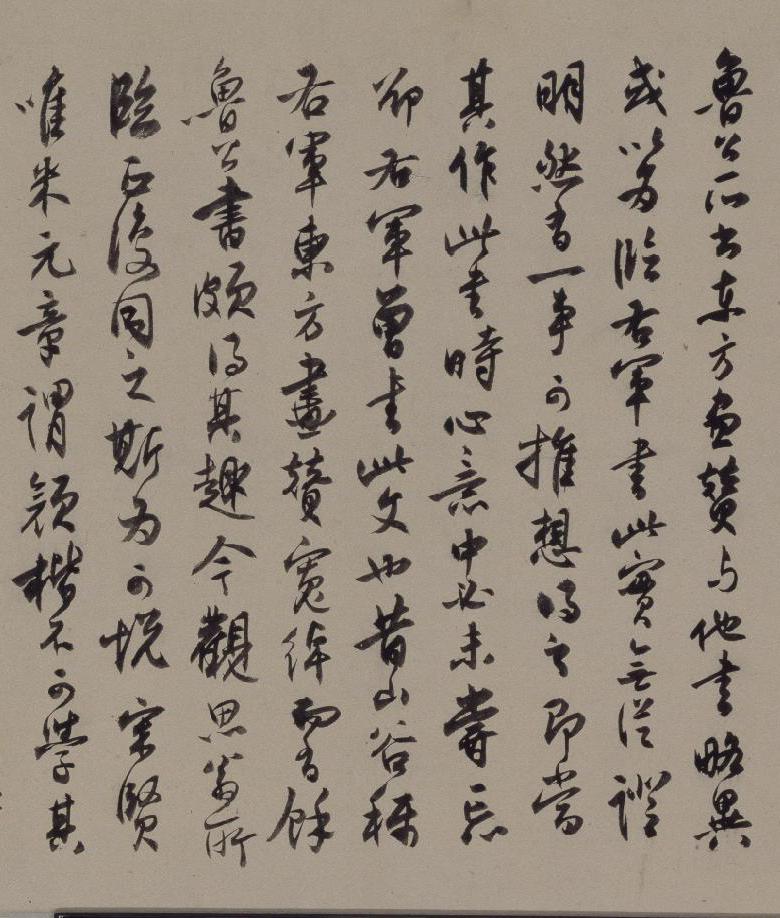 魯公所書東方畫贊與他書略異
或以爲臨右軍書此實無從證
明然有一事可推想得之即當
其作此書時心意中必未嘗忘
卻右軍曾書此文也昔山谷稱
右軍東方畫贊寬綽而有餘
魯公書頗得其趣今觀思翁所
臨正復同之斯爲可悅宋賢
唯米元章謂顏楷不可學其